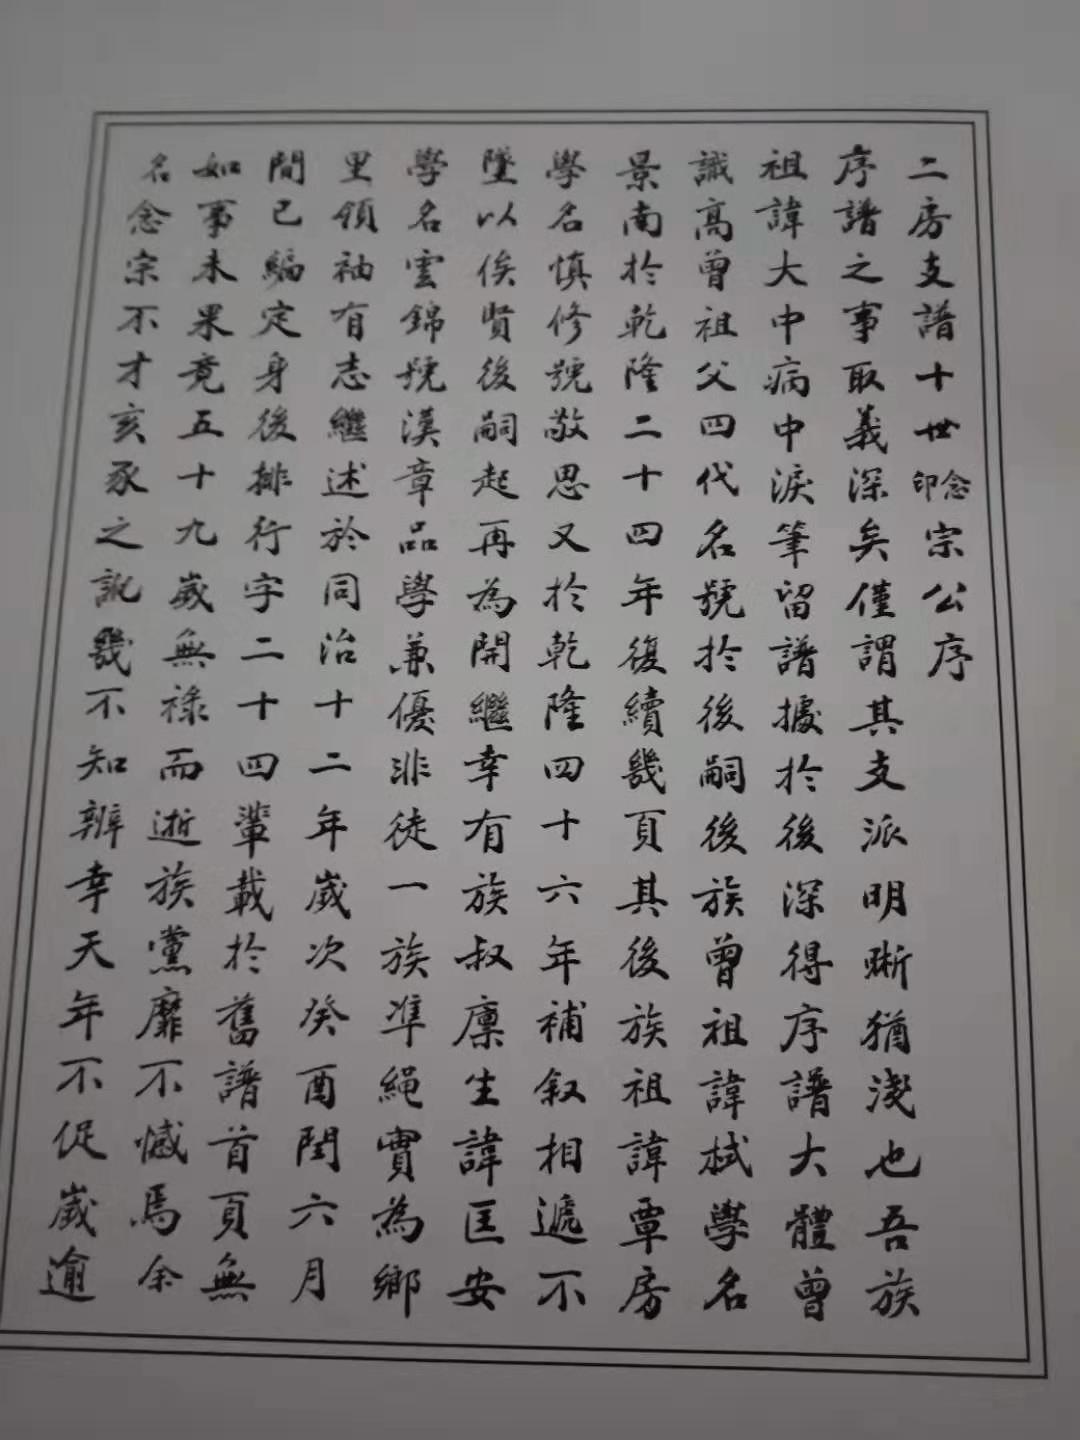 二房支譜十世念印宗公序
序譜之事取義深矣僅謂其支派明晰猶淺也吾族
祖諱大中病中淚筆留譜據於後深得序譜大體曾
識高曾祖父四代名號於後嗣後族曾祖諱栻學名
景南於乾隆二十四年復續幾頁其後族祖諱覃房
學名慎修號敬思又於乾隆四十六年補叙相遞不
墜以俟賢後嗣起再為開繼幸有族叔廩生諱匡安
學名雲錦號漢章品學兼優非徒一族準繩實為鄉
里領袖有志繼述於同治十二年歲次癸酉閏六月
間已編定身後排行字二十四輩載於舊譜首頁無
如事未果竟五十九歲無祿而逝族黨靡不憾焉余
名念宗不才亥豕之訛幾不知辨幸天年不促歲逾